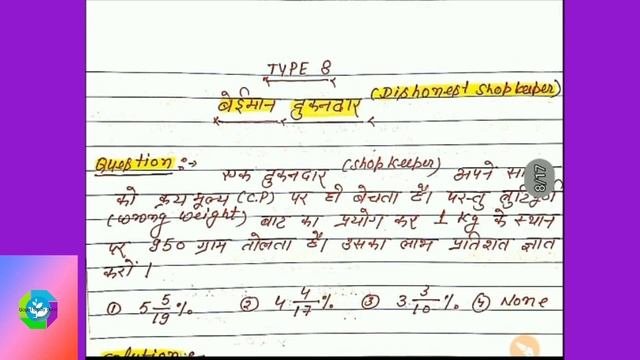 TYPE 8
बेईमान दुकानदार (Dishonest Shopkeeper)
Question :→
एक दुकानदार (shopkeeper) अपने
को क्रय मूल्य (C.P) पर ही बेचता है। परन्तु
(wrong weight) बाट का प्रयोग कर 1 kg के स्थान
पर 950 ग्राम तोलता है। उसका लाभ प्रतिशत ज्ञात
करो।
① 5 5/19 % ② 4 4/17 % ③ 3 3/10 % ④ None
8/17